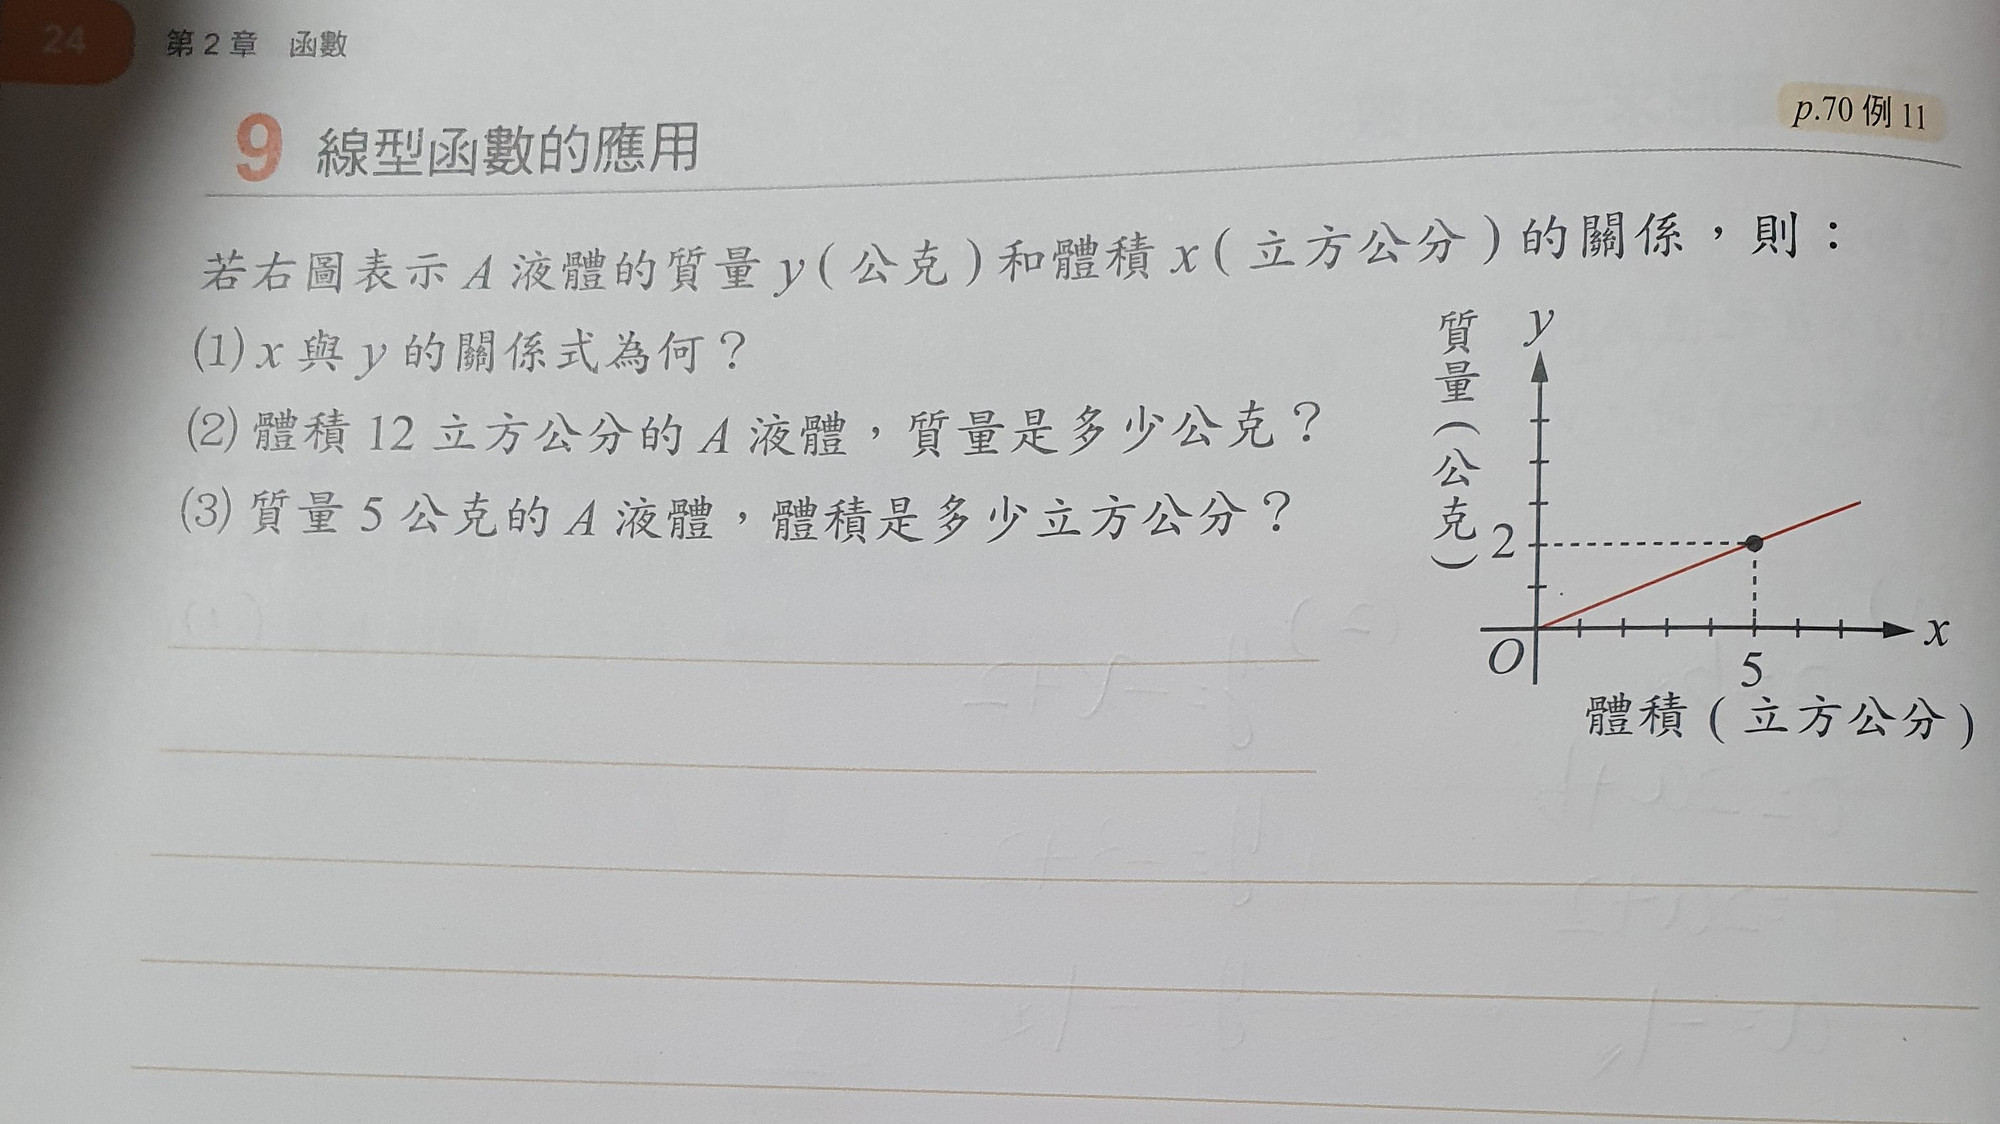 24 第2章 函數
p.70 例 11
9 線型函數的應用
若右圖表示 A 液體的質量 y(公克)和體積 x(立方公分)的關係，則：
(1) x 與 y 的關係式為何？
(2) 體積 12 立方公分的 A 液體，質量是多少公克？
(3) 質量 5 公克的 A 液體，體積是多少立方公分？
質量(公克)
y
2
O
5
x
體積(立方公分)